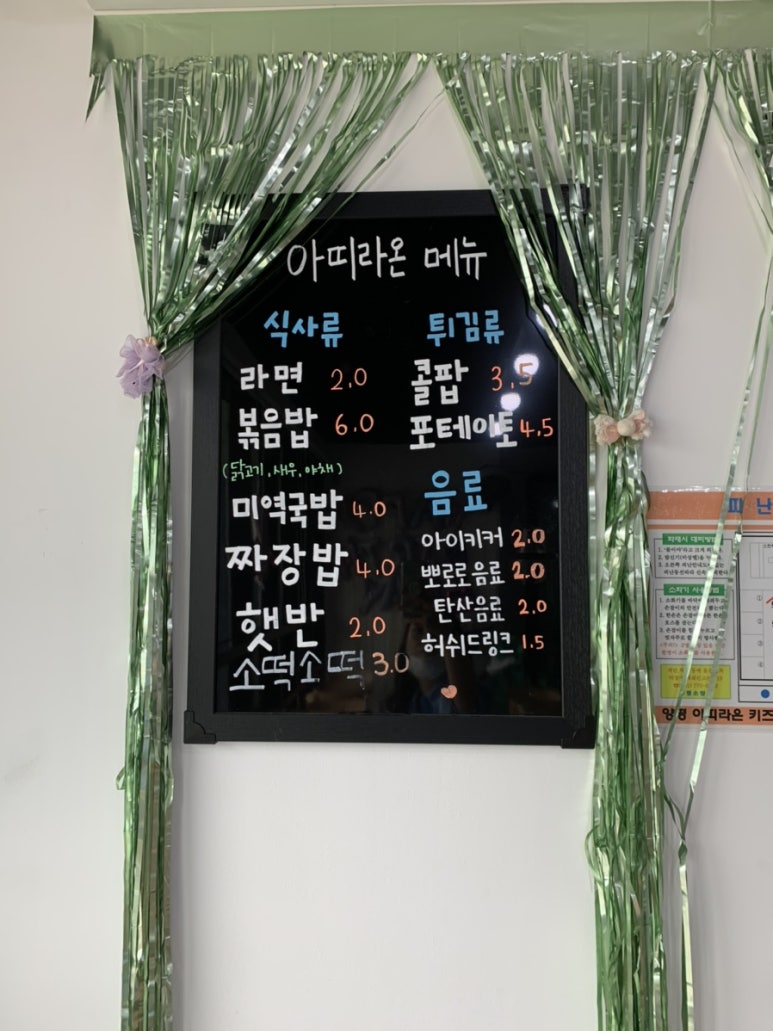 아띠라온 메뉴
식사류
라면 2.0
볶음밥 6.0
(닭고기, 새우, 야채)
미역국밥 4.0
짜장밥 4.0
햇반 2.0
소떡소떡 3.0
튀김류
콜팝 3.5
포테이토 4.5
음료
아이키커 2.0
뽀로로음료 2.0
탄산음료 2.0
허쉬드링크 1.5
피 난
화재시 대피방법
소화기 사용방법
양평 아띠라온 키즈